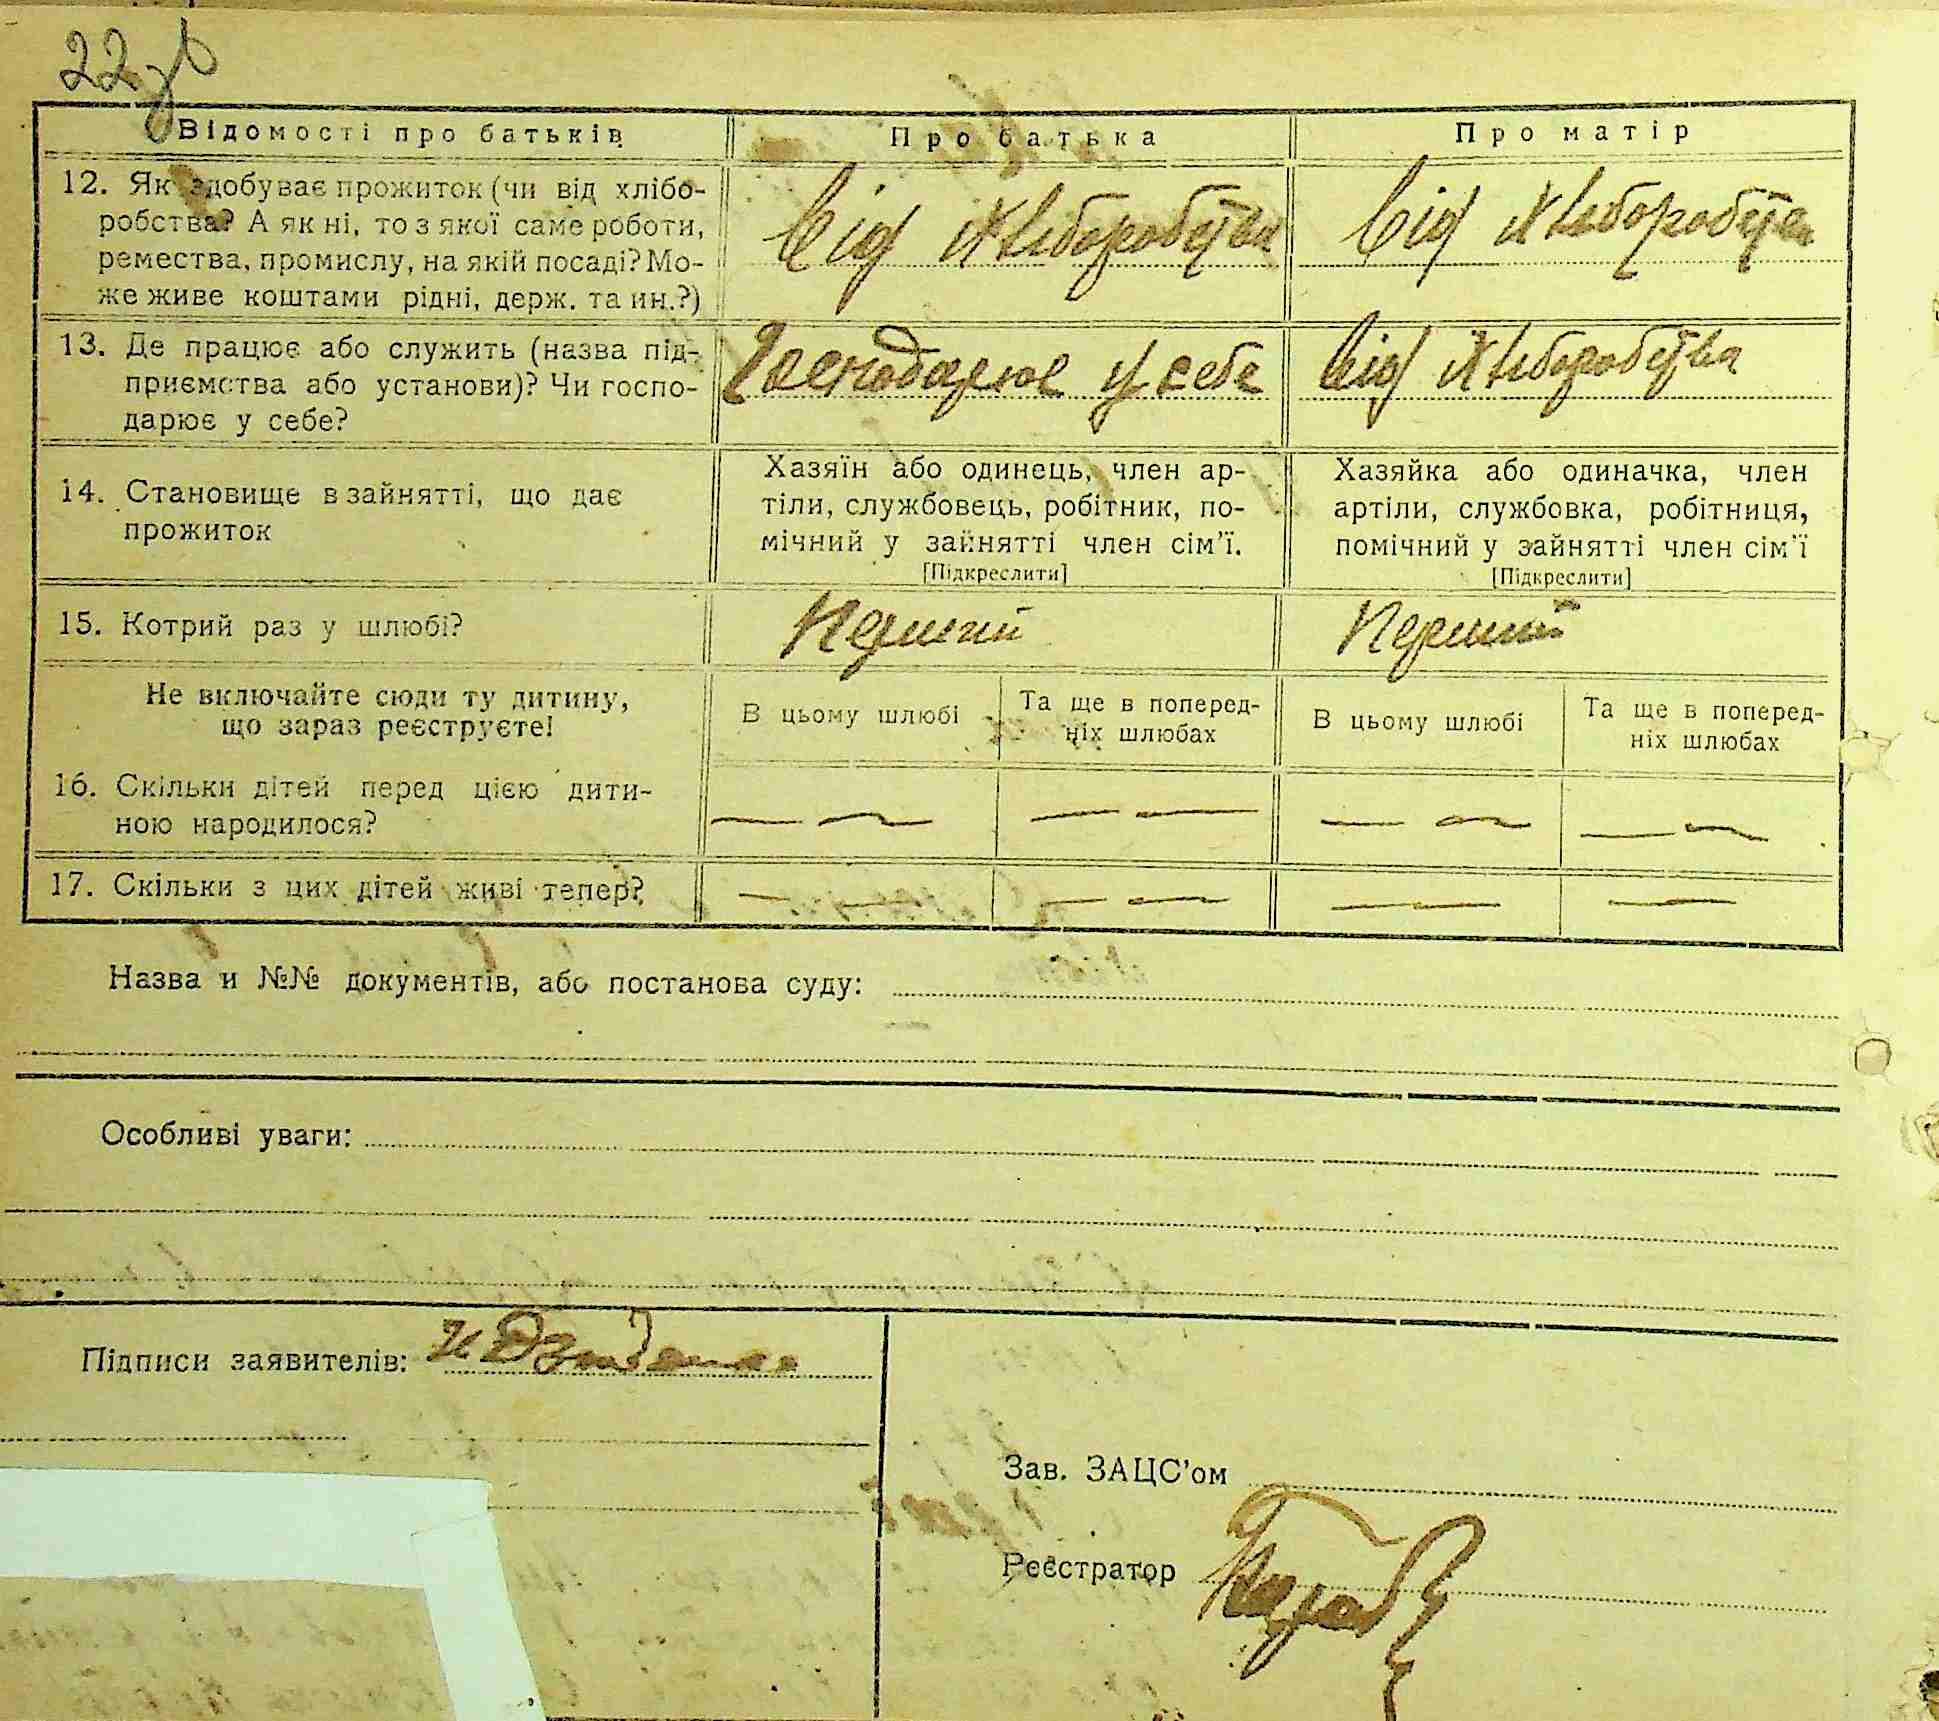 22зв
Відомості про батьків
Про батька
Про матір
12. Як здобуває прожиток (чи від хлібо-
робства? А як ні, то з якої саме роботи,
ремества, промислу, на якій посаді? Мо-
же живе коштами рідні, держ. та ин.?)
від хліборобства
від хліборобства
13. Де працює або служить (назва під-
приємства або установи)? Чи госпо-
дарює у себе?
Господарює у себе
від хліборобства
14. Становище в зайнятті, що дає
прожиток
Хазяїн або одинець, член ар-
тіли, службовець, робітник, по-
мічний у зайнятті член сім'ї.
[Підкреслити]
Хазяйка або одиначка, член
артіли, службовка, робітниця,
помічний у зайнятті член сім'ї
[Підкреслити]
15. Котрий раз у шлюбі?
Перший
Перший
Не включайте сюди ту дитину,
що зараз реєструєте!
В цьому шлюбі
Та ще в поперед-
ніх шлюбах
В цьому шлюбі
Та ще в поперед-
ніх шлюбах
16. Скільки дітей перед цією дити-
ною народилося?
— — — — — — — —
17. Скільки з цих дітей живі тепер?
— — — — — — — —
Назва и №№ документів, або постанова суду:
Особливі уваги:
Підписи заявителів:
Зав. ЗАЦС'ом
Реєстратор